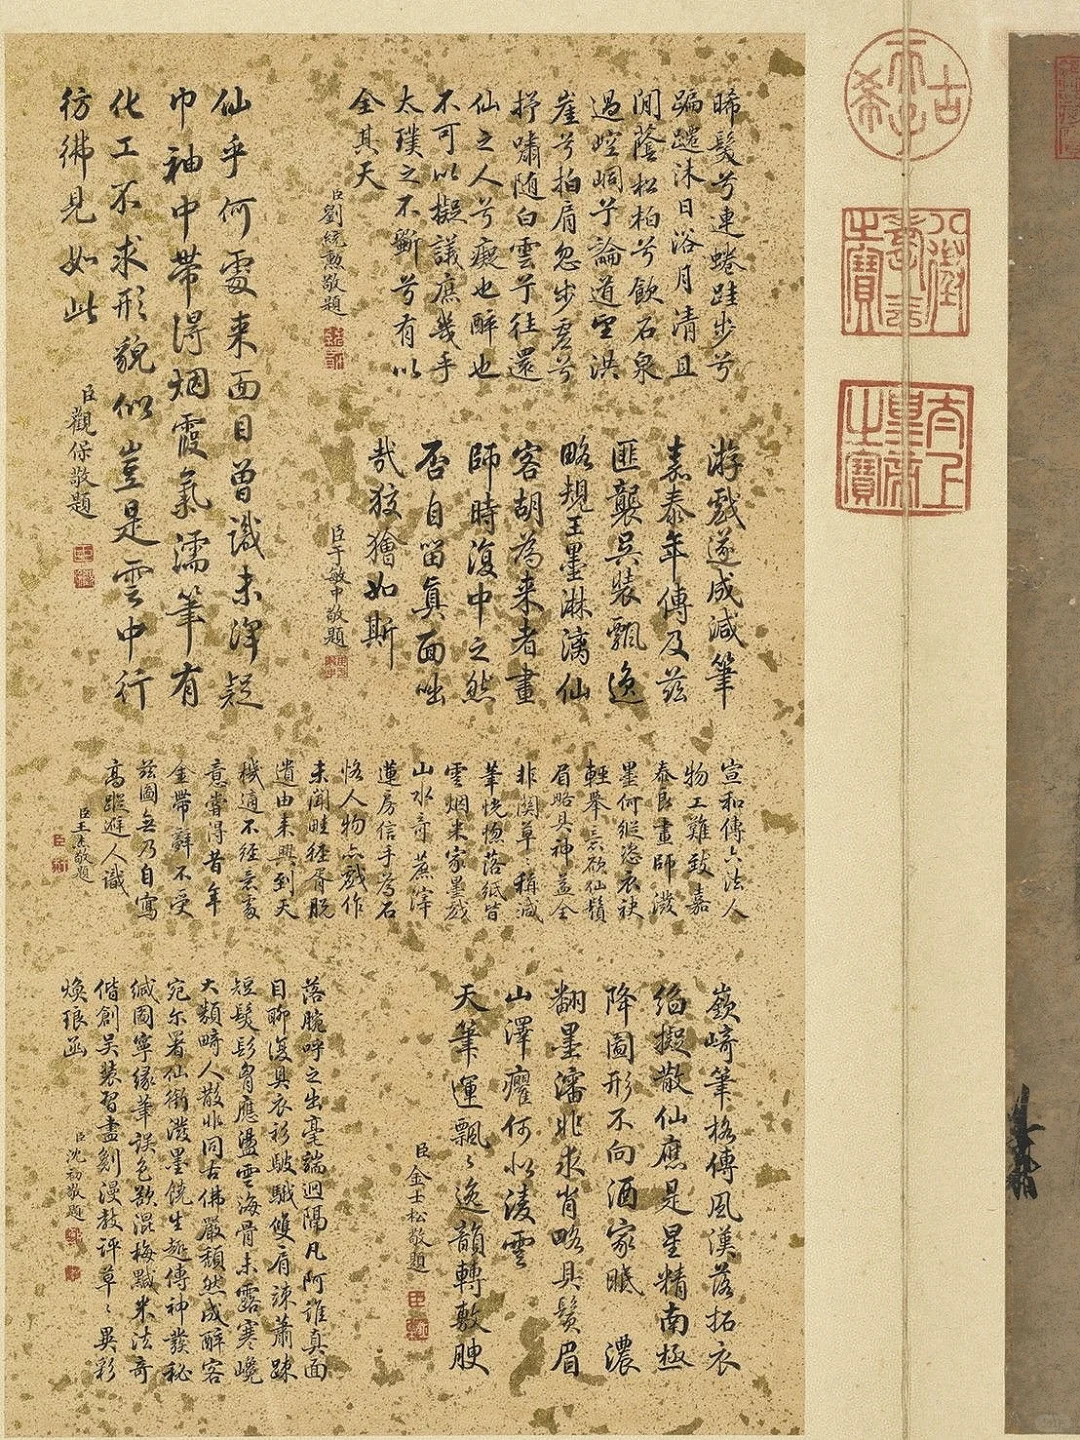 晞髮兮連蜷跬步兮
蹁躚沐日浴月清且
閒蔭松柏兮飲石泉
過崆峒兮論道望洪
崖兮拍肩忽步虛兮
抒嘯随白雲兮往還
仙之人兮癡也醉也
不可以擬議庶幾乎
太璞之不斲兮有以
全其天
臣劉統勲敬題
仙乎何處来面目曾識未渾疑
巾袖中帶得烟霞氣濡筆有
化工不求形貌似豈是雲中行
彷彿見如此
臣觀保敬題
游戲遂成減筆
嘉泰年傳及茲
匪襲吴装飄逸
略規王墨淋漓仙
客胡為来者畫
師時復中之然
否自留真面咄
哉狡獪如斯
臣于敏中敬題
宣和傳六法人
物工難致嘉
泰良畫師潑
墨何縱恣衣袂
輕舉欲仙鬚
眉略具神益全
非関草草稱減
筆恍惚落紙皆
雲烟米家墨戲
山水奇蕉滓
蓮房信手為石
恪人物点戲作
未聞畦徑胥脫
遺由来興到天
機適不經意處
意嘗得昔年
金帶辭不受
茲圖無乃自寫
高蹤避人識
臣王杰敬題
嶔崎筆格傳風漢落拓衣
絢擬散仙應是星精南極
降圖形不向酒家眠 濃
翻墨瀋非求肖略具鬚眉
山澤癯何似淩雲
天筆運飄飄逸韻轉敷腴
臣金士松敬題
落腕呼之出毫端迥隔凡阿誰真面
目聊復具衣衫皴皵雙肩竦蕭踈
短髮髟胷應盪雲海骨未露寒巉
大類畸人散非同古佛嚴頽然成醉客
宛尓署仙銜潑墨饒生趣傳神發秘
緘圖寧緣華誤色欲混梅黬米法奇
偕創吴装習盡剗漫教評草草異彩
煥琅函
臣沈初敬題
古希天子
八徵耄念之寶
太上皇帝之寶